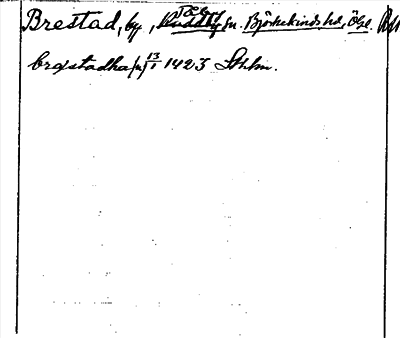 Brestad, by, Tåby sn. Björkekinds hd, Ögl.
brestadha 13/1 1423 Sthlm.